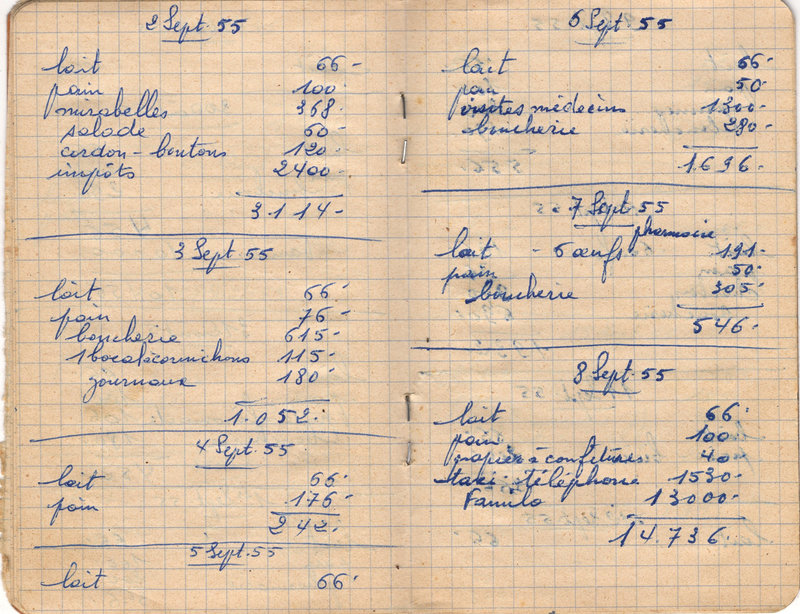 2 Sept. 55
lait 66-
pain 100-
mirabelles 368-
salade 60-
cordon-boutons 120-
impôts 2400-
3.114-
3 Sept 55
lait 66-
pain 76-
boucherie 615-
1 bocal à cornichons 115-
journaux 180-
1.052-
4 Sept. 55
lait 66-
pain 176-
242-
5 Sept. 55
lait 66-
6 Sept 55
lait 66-
pain 50-
visites médecins 1300-
boucherie 280-
1.696-
7 Sept 55
pharmacie
lait - 6 œufs 191-
pain 50-
boucherie 305-
546-
8 Sept. 55
lait 66-
pain 100-
papier à confitures 40-
taxi-téléphone 1530-
13000-
14.736-